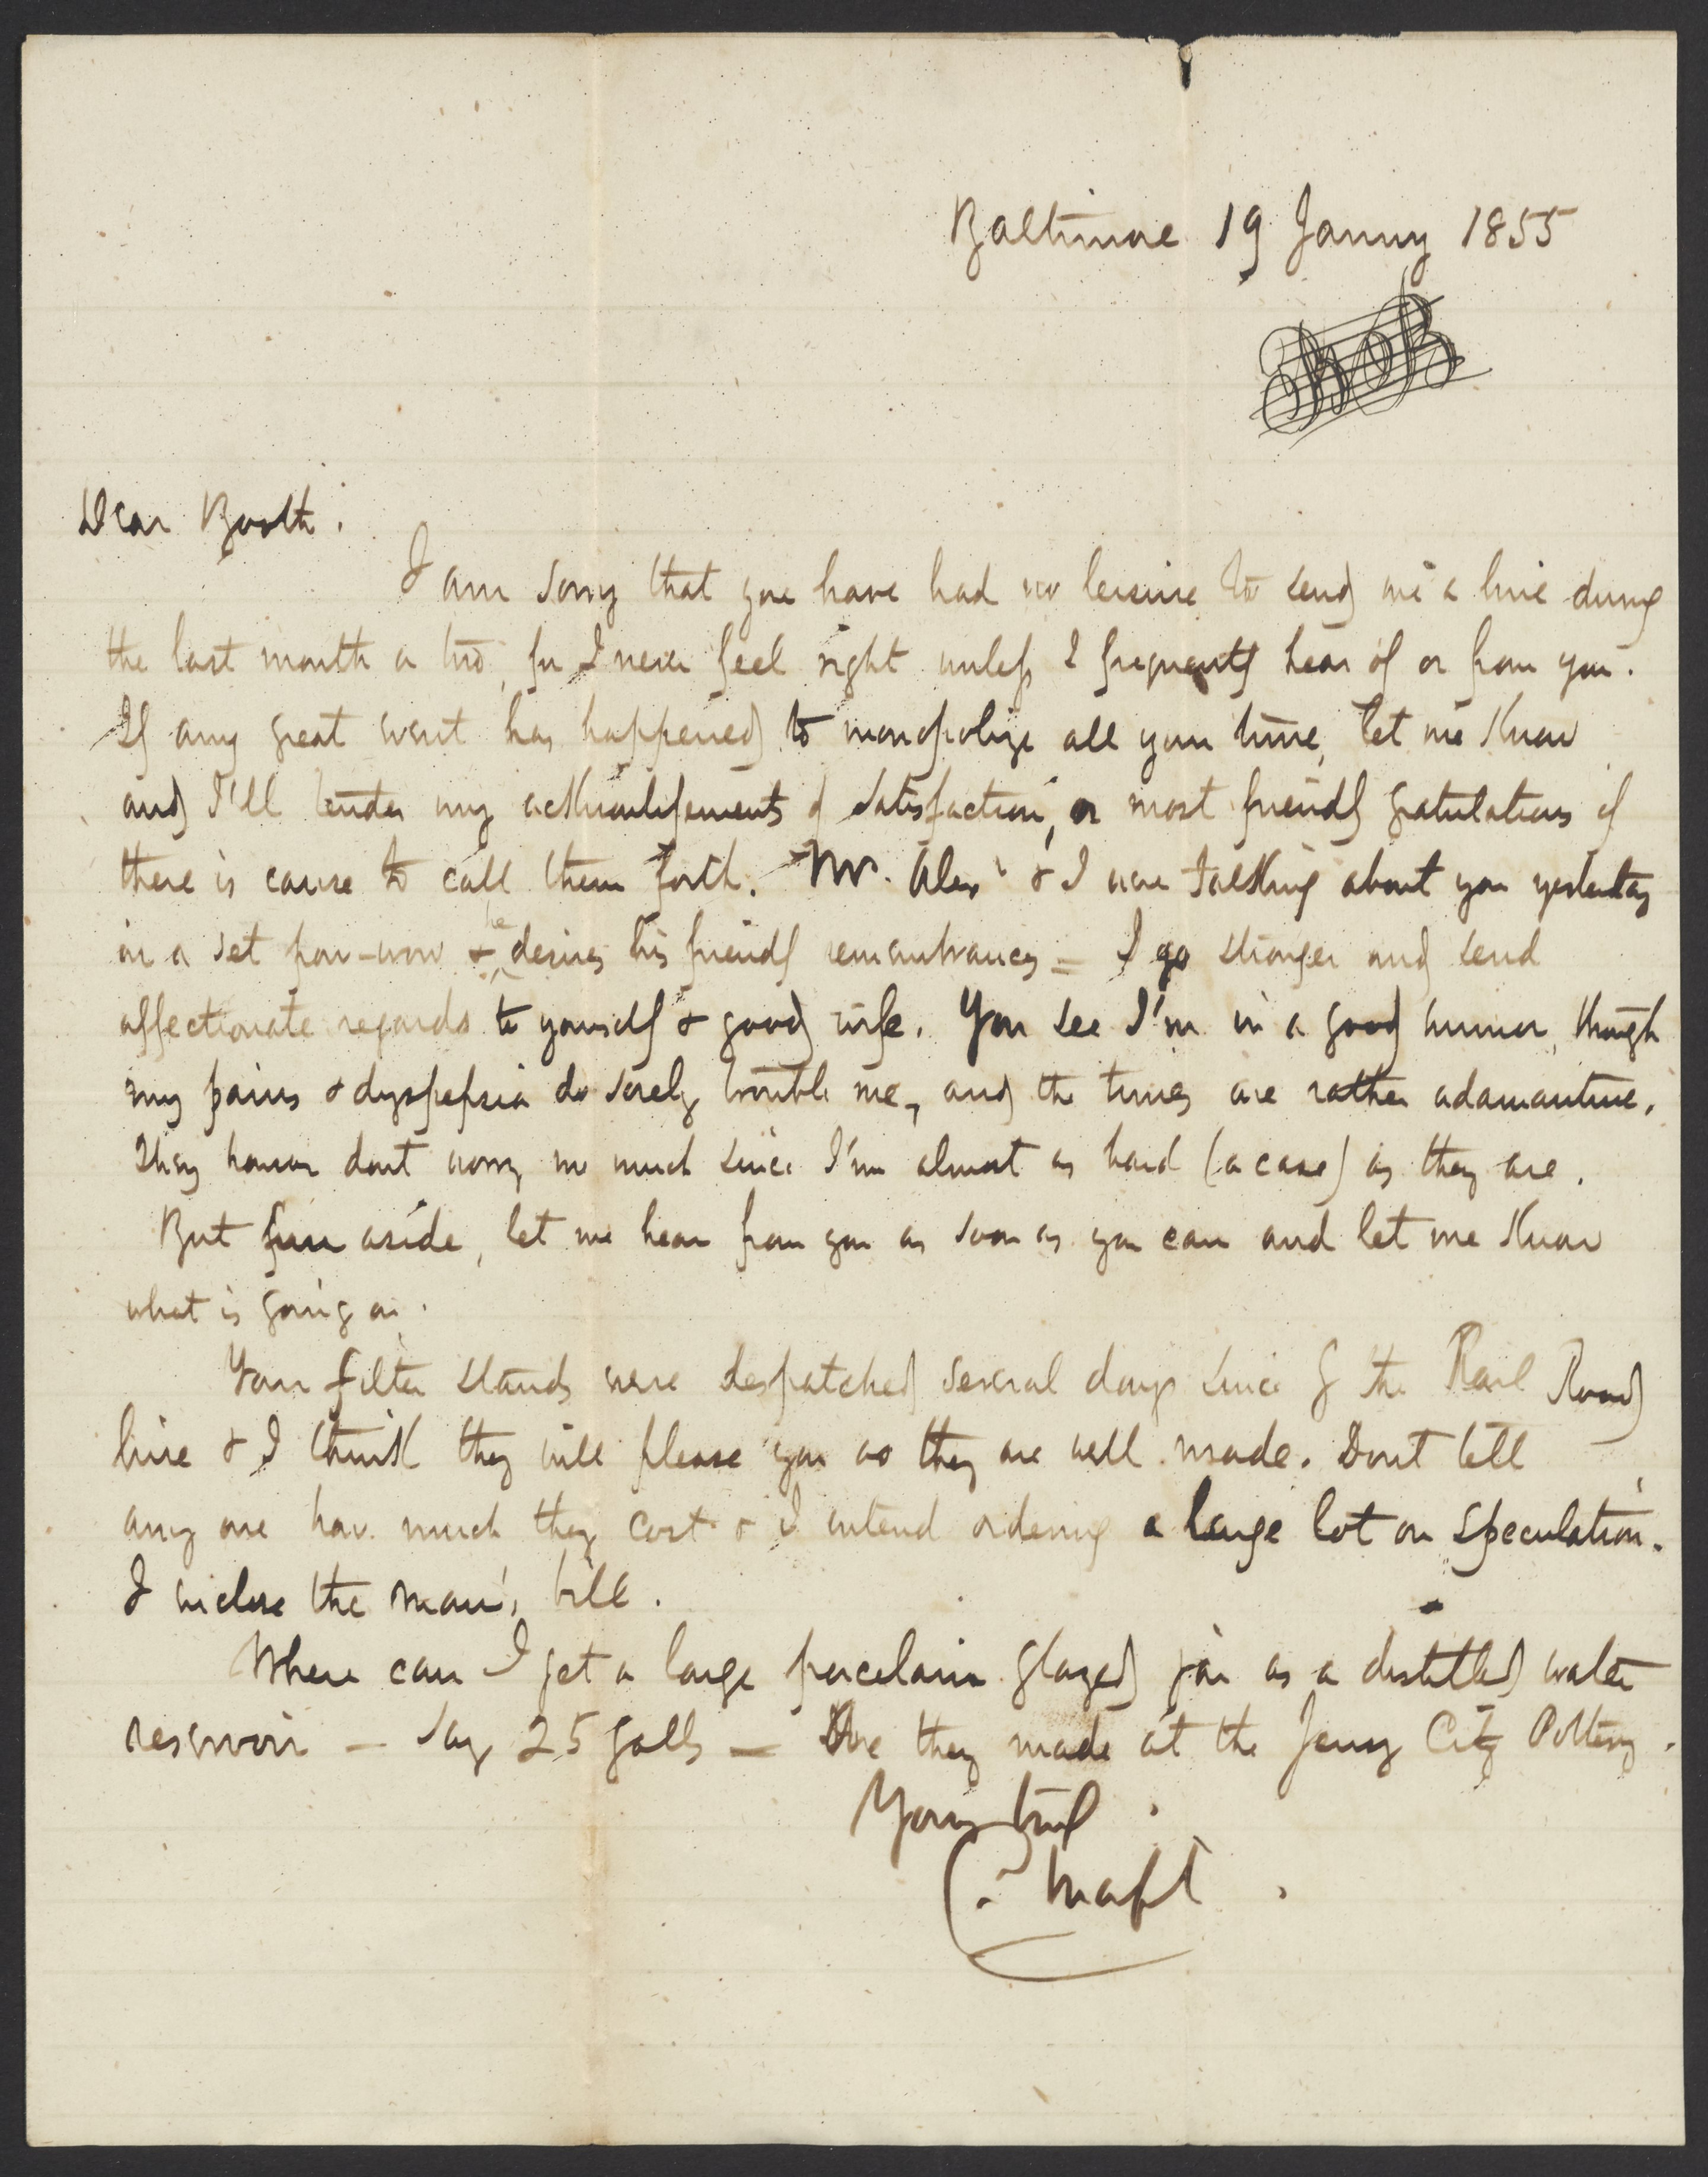 Baltimore 19 Januy 1855
Dear Booth:
I am sorry that you have had no leisure to send me a line during
the last month or two, for I never feel right unless I frequently hear of or from you.
If any great event has happened to monopolize all your time, let me know
and I'll tender my acknowledgements of satisfaction, or most friendly gratulations if
there is cause to call them forth. Mr. Alexr & I were talking about you yesterday
in a set pow-wow & he desires his friendly remembrances = I go stronger and send
affectionate regards to yourself & good wife. You see I'm in a good humor, though
my pains & dyspepsia do sorely trouble me, and the times are rather adamantine.
They however dont worry me much since I'm almost as hard (a case) as they are.
But fun aside, let me hear from you as soon as you can and let me know
what is going on.
Your filter stands were despatched several days since by the Rail Road
line & I think they will please you as they are well made. Dont tell
any one how much they cost & I intend ordering a large lot on speculation.
I inclose the man's bill.
Where can I get a large porcelain glazed jar as a distilled water
reservoir - say 25 galls - Are they made at the Jersey City Pottery.
Yours truly
C. Morfit